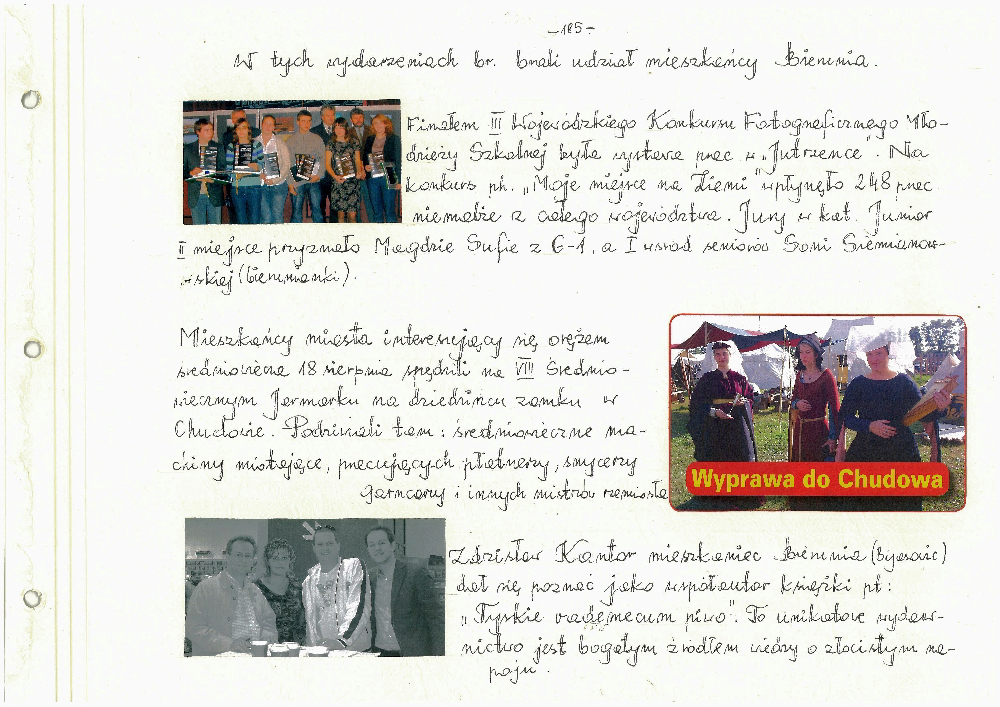 -185-
W tych wydarzeniach br. brali udział mieszkańcy Bierunia.
Finałem III Wojewódzkiego Konkursu Fotograficznego Mło-
dzieży Szkolnej była wystawa prac w „Jutrzence". Na
konkurs ph. „Moje miejsce na Ziemi wpłynęło 248 prac
niemalże z całego województwa. Jury w kat. Junior
II miejsce przyznało Magdzie Sufie z G-1, a I wśród seniorów Soni Siemianow-
wskiej (bierunianki).
Mieszkańcy miasta interesujący się orężem
średniowiecza 18 sierpnia spędzili na VIII Średnio-
wiecznym Jarmarku na dziedzińcu zamku w
Chudowie. Podziwiali tam: średniowieczne ma-
chiny miotające, pracujących płatnerzy, snycerzy
garncarzy i innych mistrzów rzemiosła
Wyprawa do Chudowa
Zdzisław Kantor mieszkaniec Bierunia
dał się poznać jako współautor książki pt:
„Tyskie vademecum piwa". To unikatowe wydaw-
nictwo jest bogatym źródłem wiedzy o złocistym na-
poju".